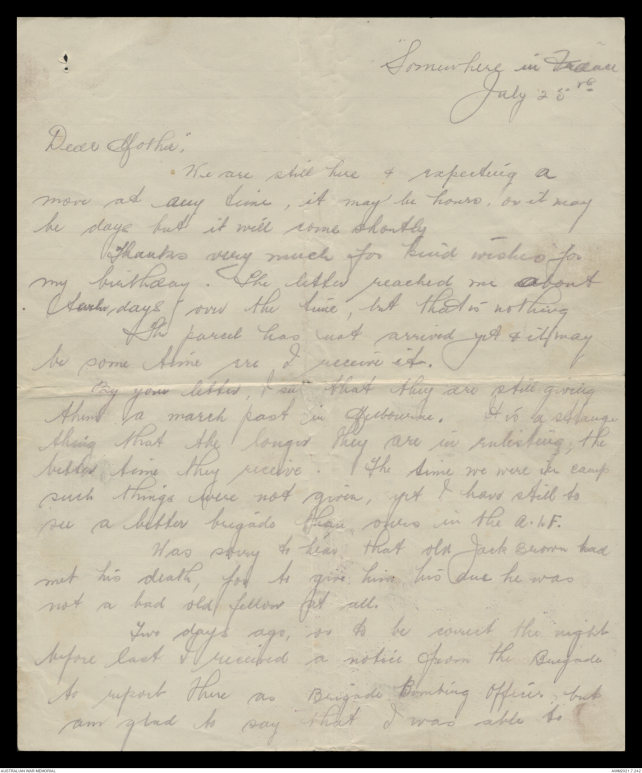 "Somewhere in France
July 25 rd
Dear Mother,
We are still here & expecting a
move at any time, it may be hours, or it may
be days but it will come shortly
Thanks very much for kind wishes for
my birthday. The letter reached me about
days over the time, but that is nothing
The parcel has not arrived yet & it may
be some time ere I receive it.
By your letter, I see that they are still giving
them a march past in Melbourne. It is a strange
thing that the longer they are in enlisting, the
better time they receive. The time we were in camp
such things were not given, yet I have still to
see a better brigade than ours in the A.I.F.
Was sorry to hear that old Jack Brown had
met his death, for to give him his due he was
not a bad old fellow at all.
Two days ago, or to be correct the night
before last I received a notice from the Brigade
to report there as Brigade Bombing Officer, but
am glad to say that I was able to
AUSTRALIAN WAR MEMORIAL